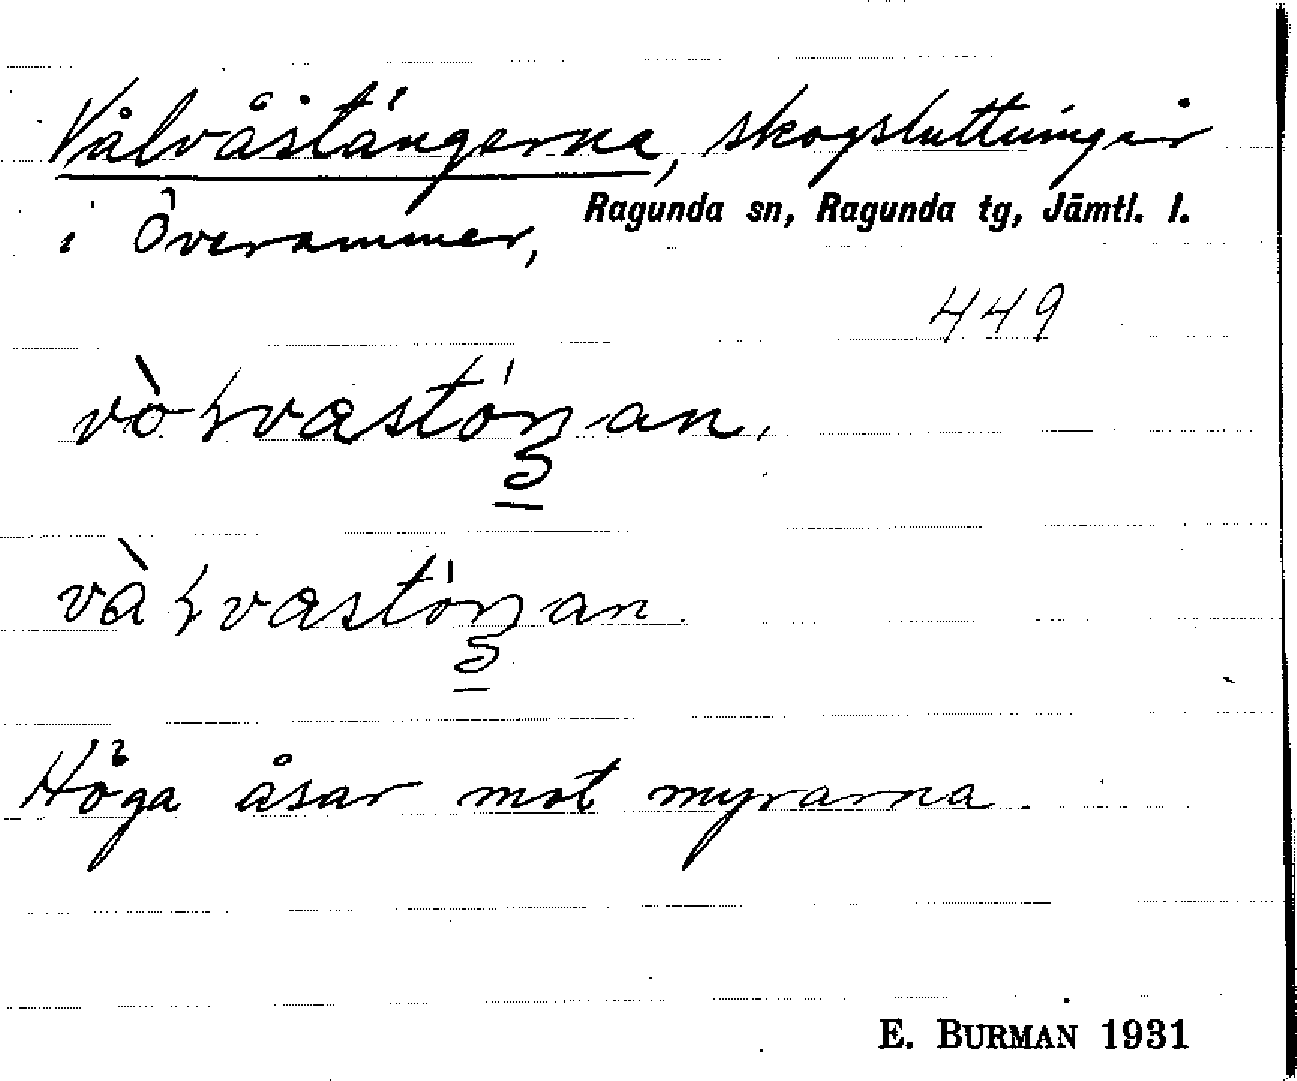 Vålvåstängerna, skogsluttningar
i Överammer, Ragunda sn, Ragunda tg, Jämtl. l.
449
Höga åsar mot myrarna.
E. BURMAN 1931